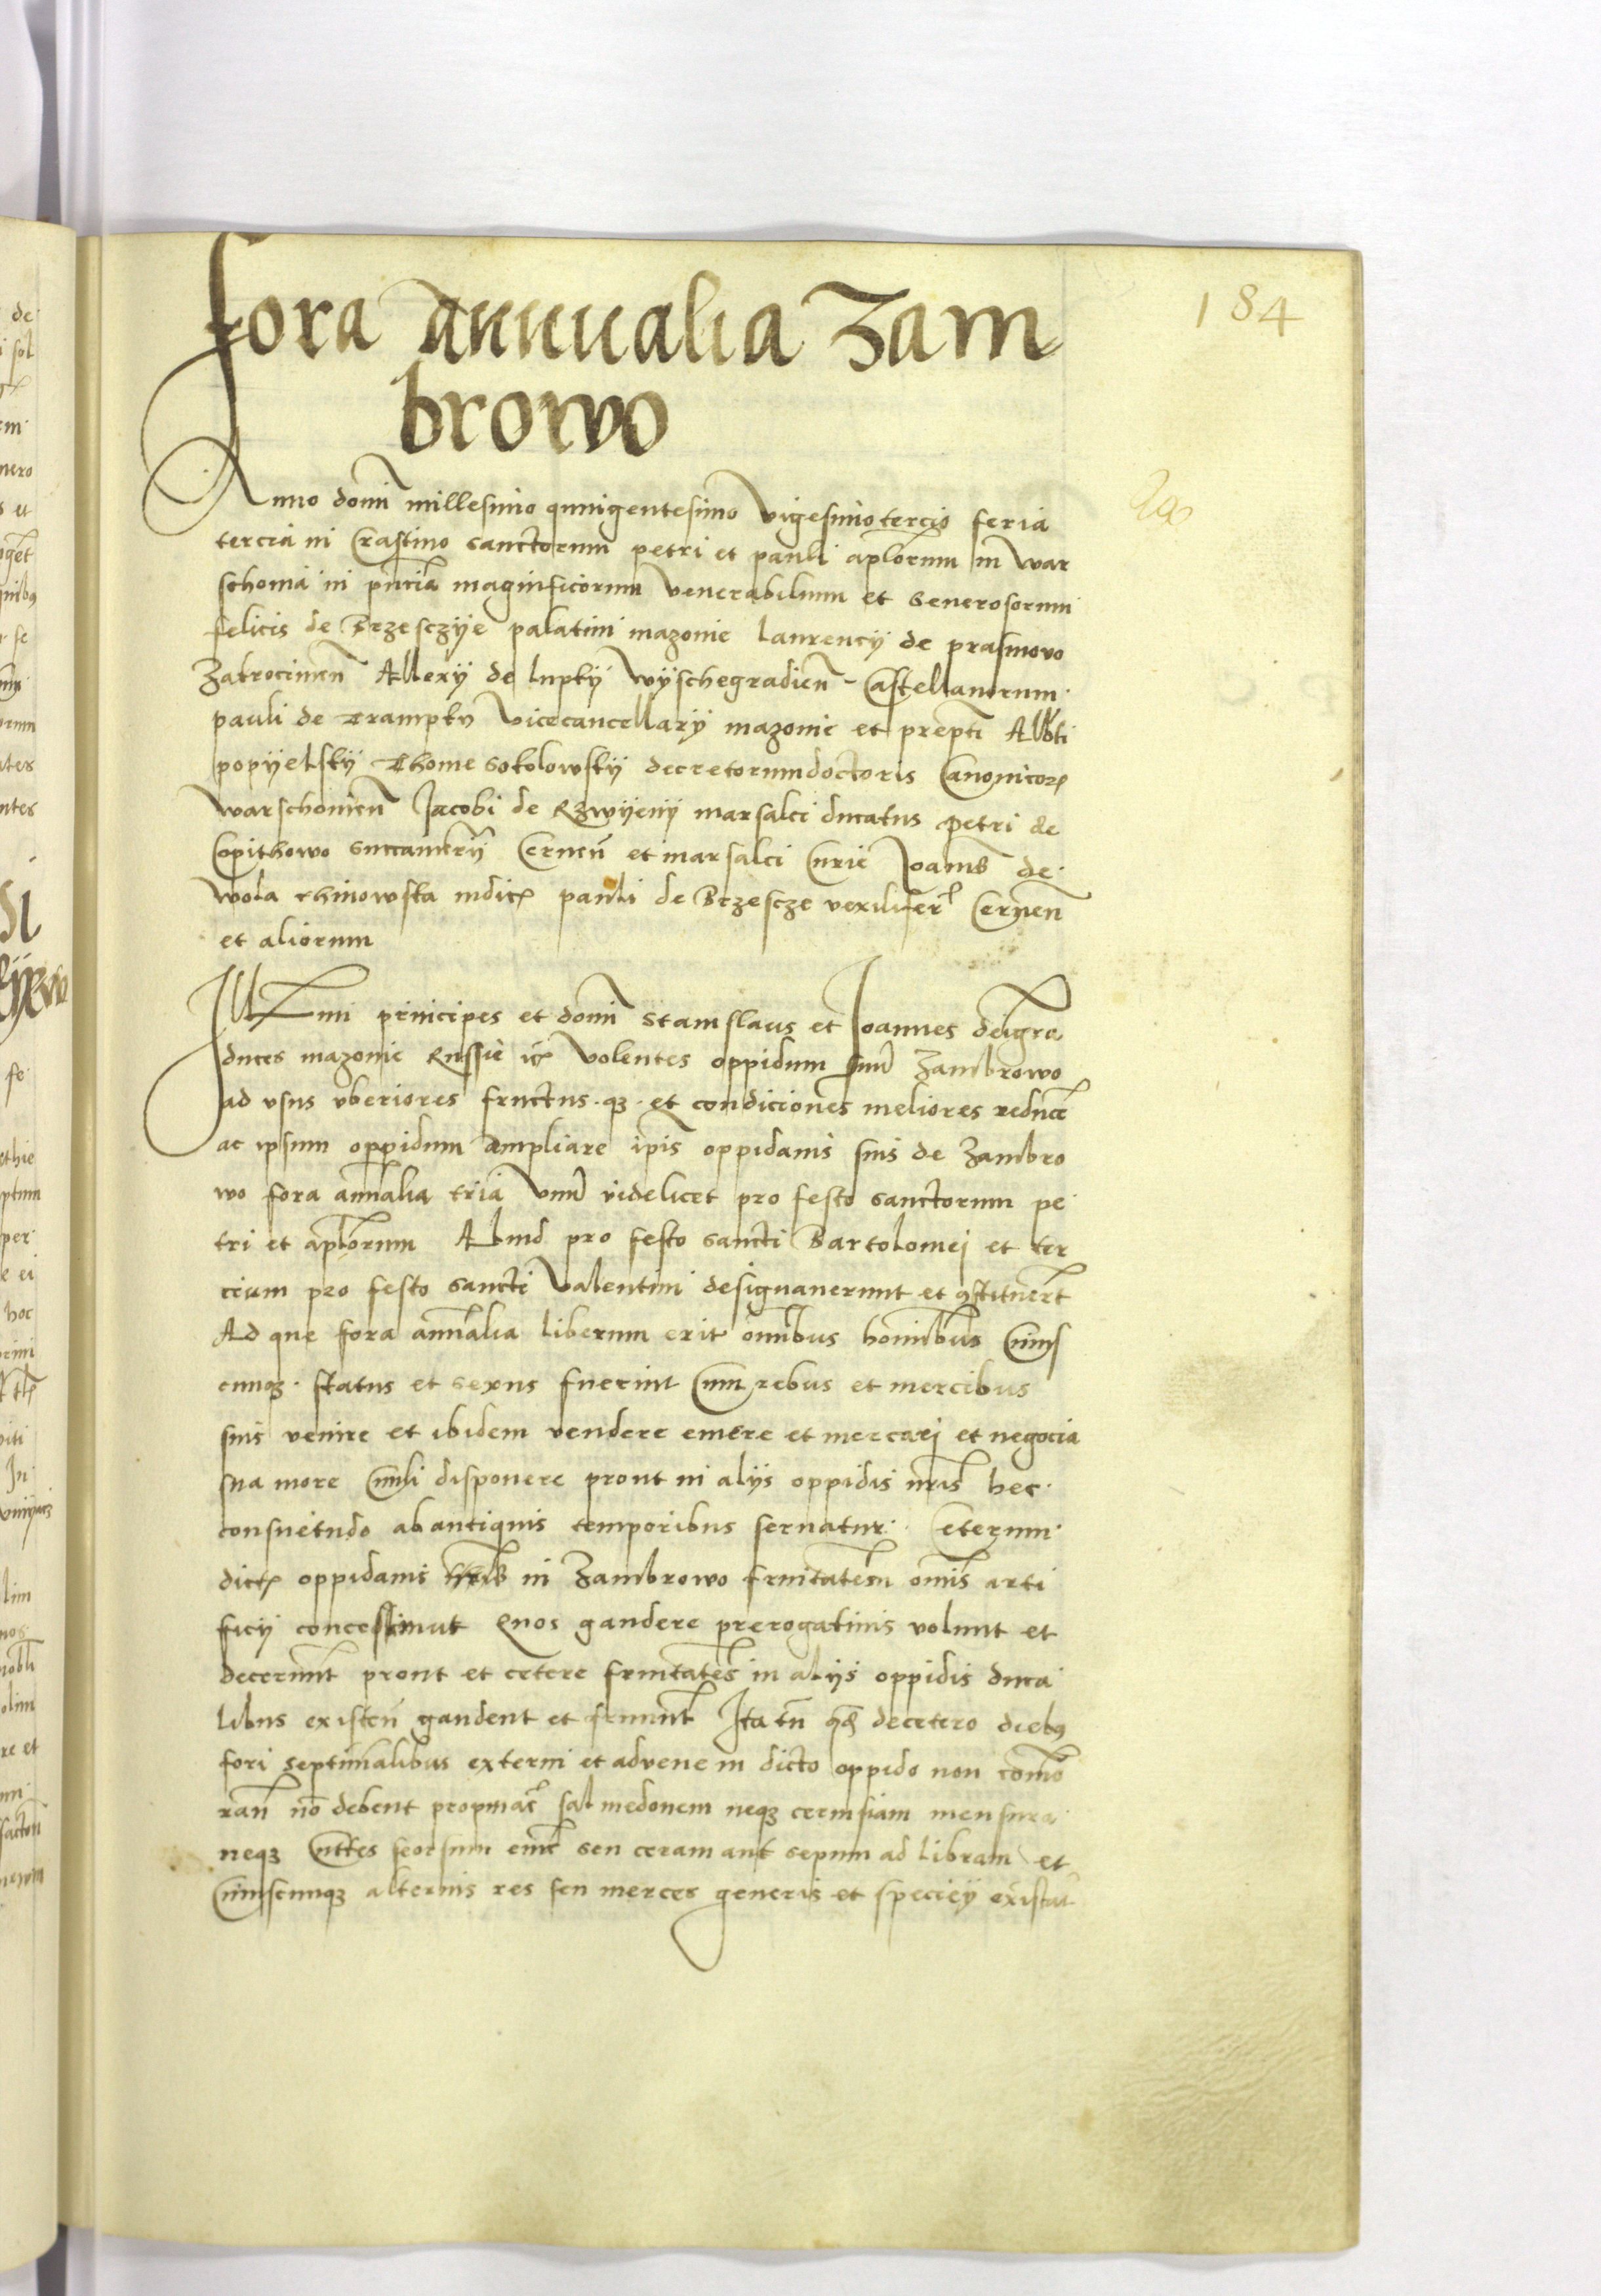 184
fora annualia Zam
browo
Anno domi millesimo quingentesimo vigesimotercio feria
tercia in Crastino sanctorum petri et pauli aplorum in war
schouia in pncia magnificorum venerabilium et Generosorum
felicis de Brzesczye palatini mazouie laurencij de prasmowo
Zakrocimen Allexij de lupky wyschegradien Castellanorum
pauli de Trampky vicecancellarij mazouie et prepti Alberti
popyelsky Thome sokolowsky decretorum doctoris Canonicor
warschouien Jacobi de Rzwyeny marsalci ducatus petri de
Copithowo succamerij Cernen et marsalci Curie Joannis de
wola Chinowska iudicis pauli de Brzescze vexiliferi Cernen
et aliorum
Illmi principes et domi Stanislaus et Joannes dei gra
duces mazouie Russie etc volentes oppidum suum Zambrowo
ad usus uberiores fructus q3 et condiciones meliores reducere
ac ipsum oppidum ampliare ipis oppidanis suis de Zambro
wo fora annalia tria vnum videlicet pro festo sanctorum pe
tri et aplorum Aliud pro festo sancti Bartolomei et ter
cium pro festo sancti valentini designauerunt et 9stituerut
Ad que fora annalia liberum erit omibus hominibus Cuius
cunq3 status et sexus fuerint Cum rebus et mercibus
suis venire et ibidem vendere emere et mercarj et negocia
sua more Ciuili disponere prout in alijs oppidis nris hec
consuetudo ab antiquis temporibus seruatur Ceterum
dictis oppidanis in Zambrowo frnitatem omis arti
ficij concesserunt Quos gaudere prerogatiuis volunt et
decernunt prout et cetere frnitates in alijs oppidis duca
libus existen gaudent et fruunt Ita tn q decetero dieb9
fori septimalibus externi et aduene in dicto oppido non como
ran no debent propinare sal medonem neq3 ceruisiam mensura
neq3 seorsum emere seu ceram aut sepum ad libram et
Cuiuscunq3 alterius res seu merces generis et speciey existat